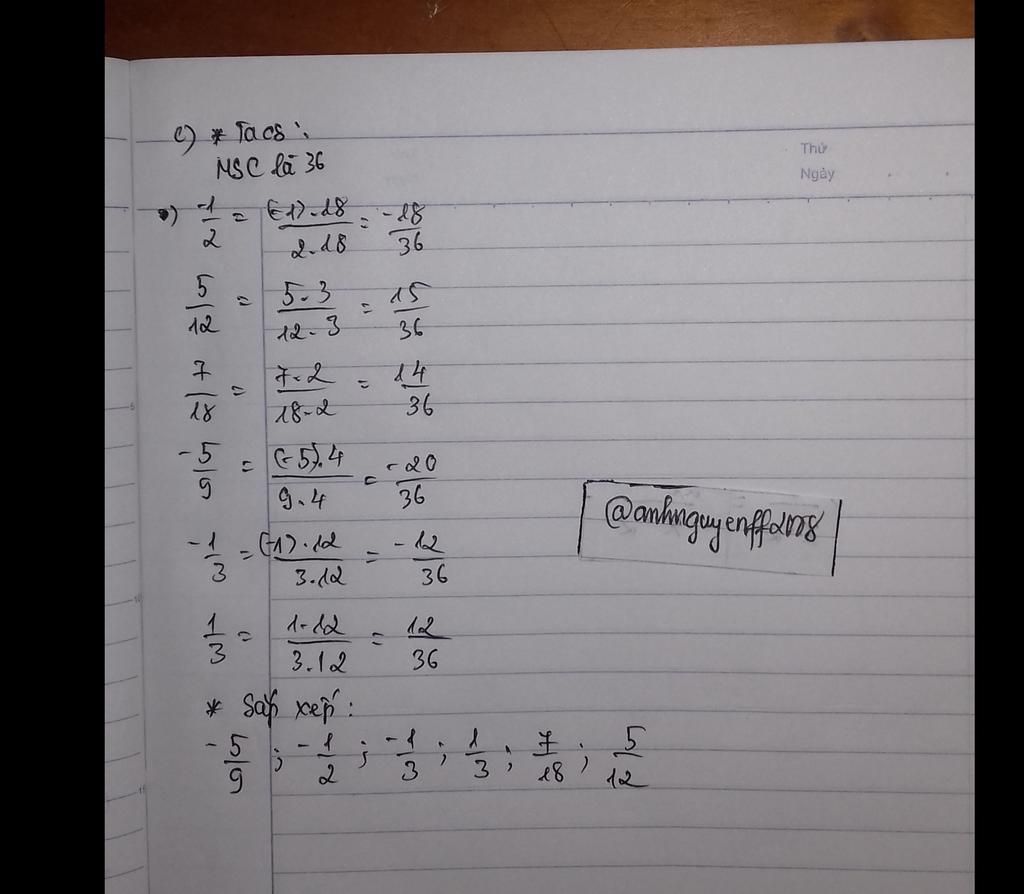 c) * Ta có:
MSC là 36
Thứ
Ngày
•) -1/2 = (-1).18/2.18 = -18/36
5/12 = 5.3/12.3 = 15/36
7/18 = 7.2/18.2 = 14/36
-5/9 = (-5).4/9.4 = -20/36
@anhnguyenff2008
-1/3 = (-1).12/3.12 = -12/36
1/3 = 1.12/3.12 = 12/36
* Sắp xếp:
-5/9 ; -1/2 ; -1/3 ; 1/3 ; 7/18 ; 5/12